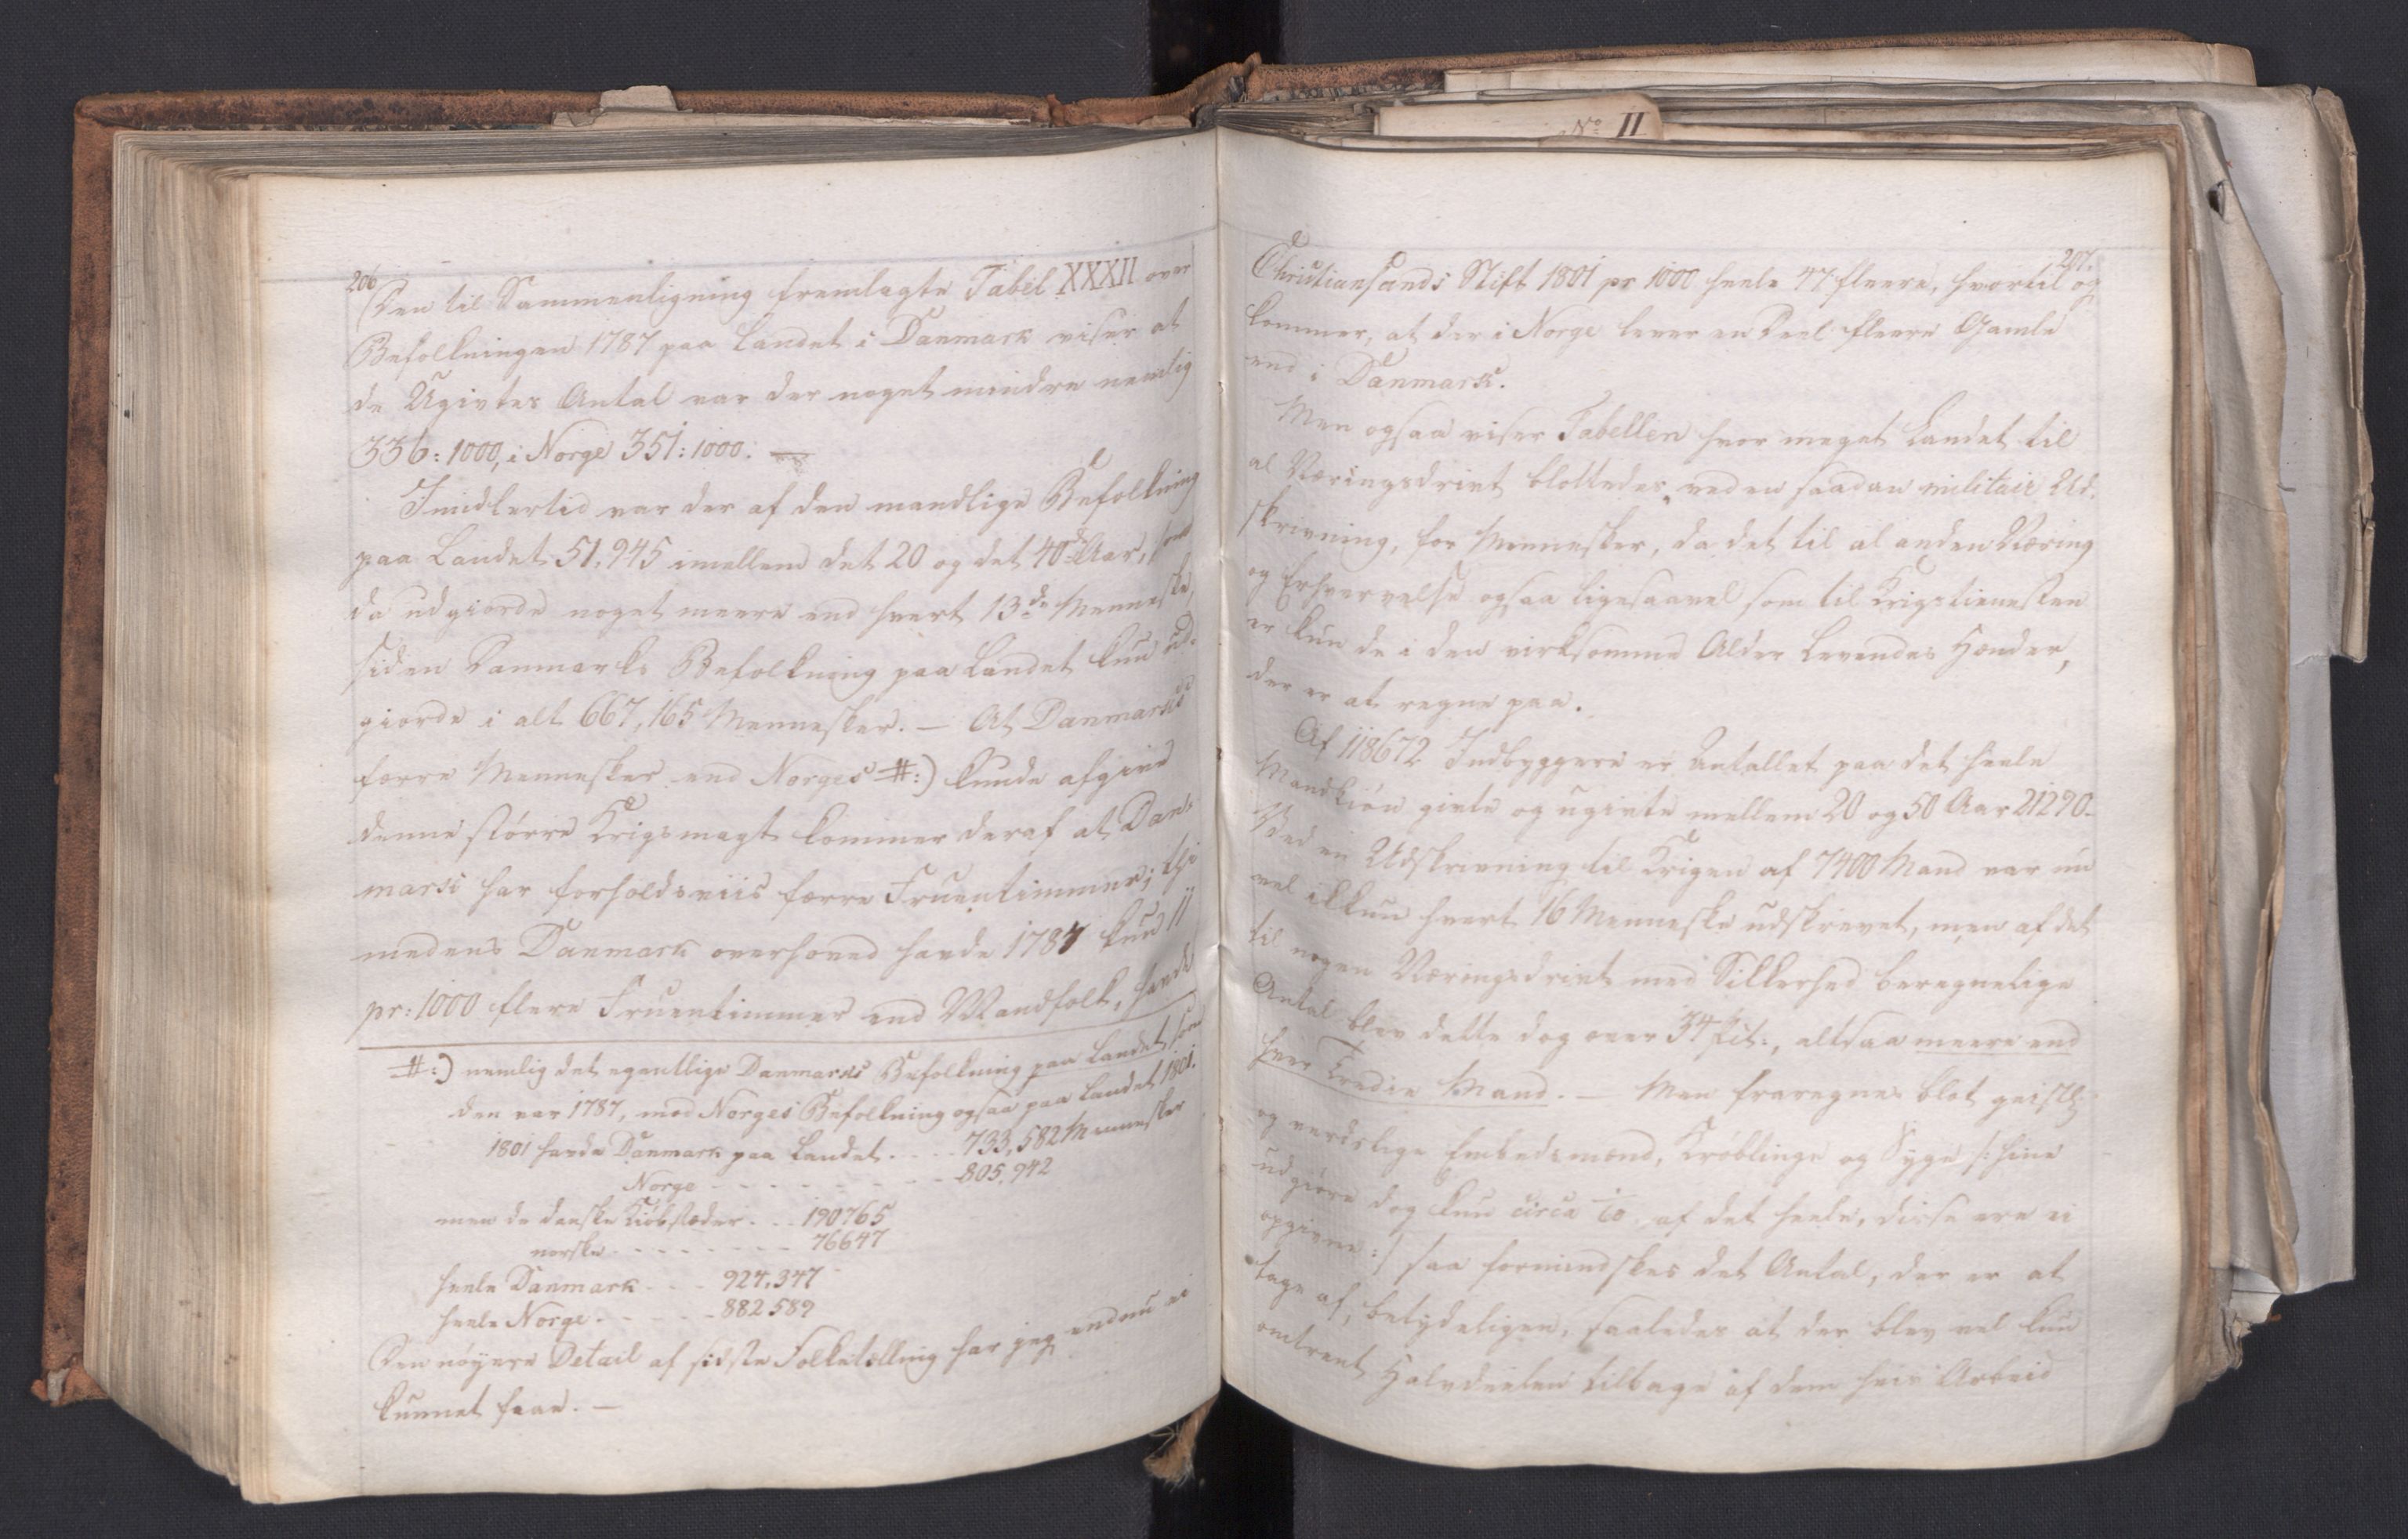 206
Den til Sammenligning fremlagte Tabel XXXII over
Befolkningen 1787 paa Landet i Danmark viser at
de Ugivtes Antal var der noget mindre nemlig
336: 1000, i Norge 351: 1000. —
Imidlertid var der af den mandlige Befolkning
paa Landet 51,945 imellem det 20 og det 40de Aar, som
da udgiorde noget meere end hvert 13de Menneske,
siden Danmarks Befolkning paa Landet kun ud-
giorde i alt 667,165 Mennesker. — At Danmarks
færre Mennesker end Norges #:) kunde afgive
denne større Krigsmagt kommer deraf at Dan-
mark har forholdsviis færre Fruentimmer; thi
medens Danmark overhoved havde 1787 kun 11
pr: 1000 flere Fruentimmer end Mandfolk, havde
#:) nemlig det egentlige Danmarks Befolkning paa Landet som
den var 1787, mod Norges Befolkning ogsaa paa Landet 1801.
1801 havde Danmark paa Landet . . . . 733,582 Mennesker
Norge - - - - - - - - - 805,942
men de danske Kiøbstæder. . . 190765
norske - - - - - - - - 76647
heele Danmark - - - 924,347
heele Norge - - - - - 882589
Den nøyere Detail af sidste Folketælling har jeg endnu ei
kunnet faae. —
№ II
207.
Christiansands Stift 1801 pr 1000 heele 47 fleere, hvortil og
kommer, at der i Norge lever en Deel fleere Gamle
end i Danmark.
Men ogsaa viser Tabellen hvor meget Landet til
al Næringsdrivt blottedes, ved en saadan militair Ud-
skrivning, for Mennesker, da det til al anden Næring
og Erhvervelse ogsaa ligesaavel som til Krigstienesten
er kun de i den virksomme Alder Levendes Hænder,
der er at regne paa.
Af 118672 Indbyggere er Antallet paa det heele
Mandkiøn givte og ugivte mellem 20 og 50 Aar 21290.
Ved en Udskrivning til Krigen af 7400 Mand var nu
vel ikkun hvert 16 Menneske udskrevet, men af det
til nogen Næringsdrivt med Sikkerhed beregnelige
Antal blev dette dog over 34 pct:, altsaa meere end
hver tredie Mand. — Men fraregnes blot geistl:
og verdslige Embedsmænd, Krøblinge og Syge /: hine
udgiøre dog kun circa 1/60 af det heele, disse ere ei
opgivne :/ saa formindskes det Antal, der er at
tage af, betydeligen, saaledes at der blev vel kun
omtrent Halvdeelen tilbage af dem hvis Arbeid